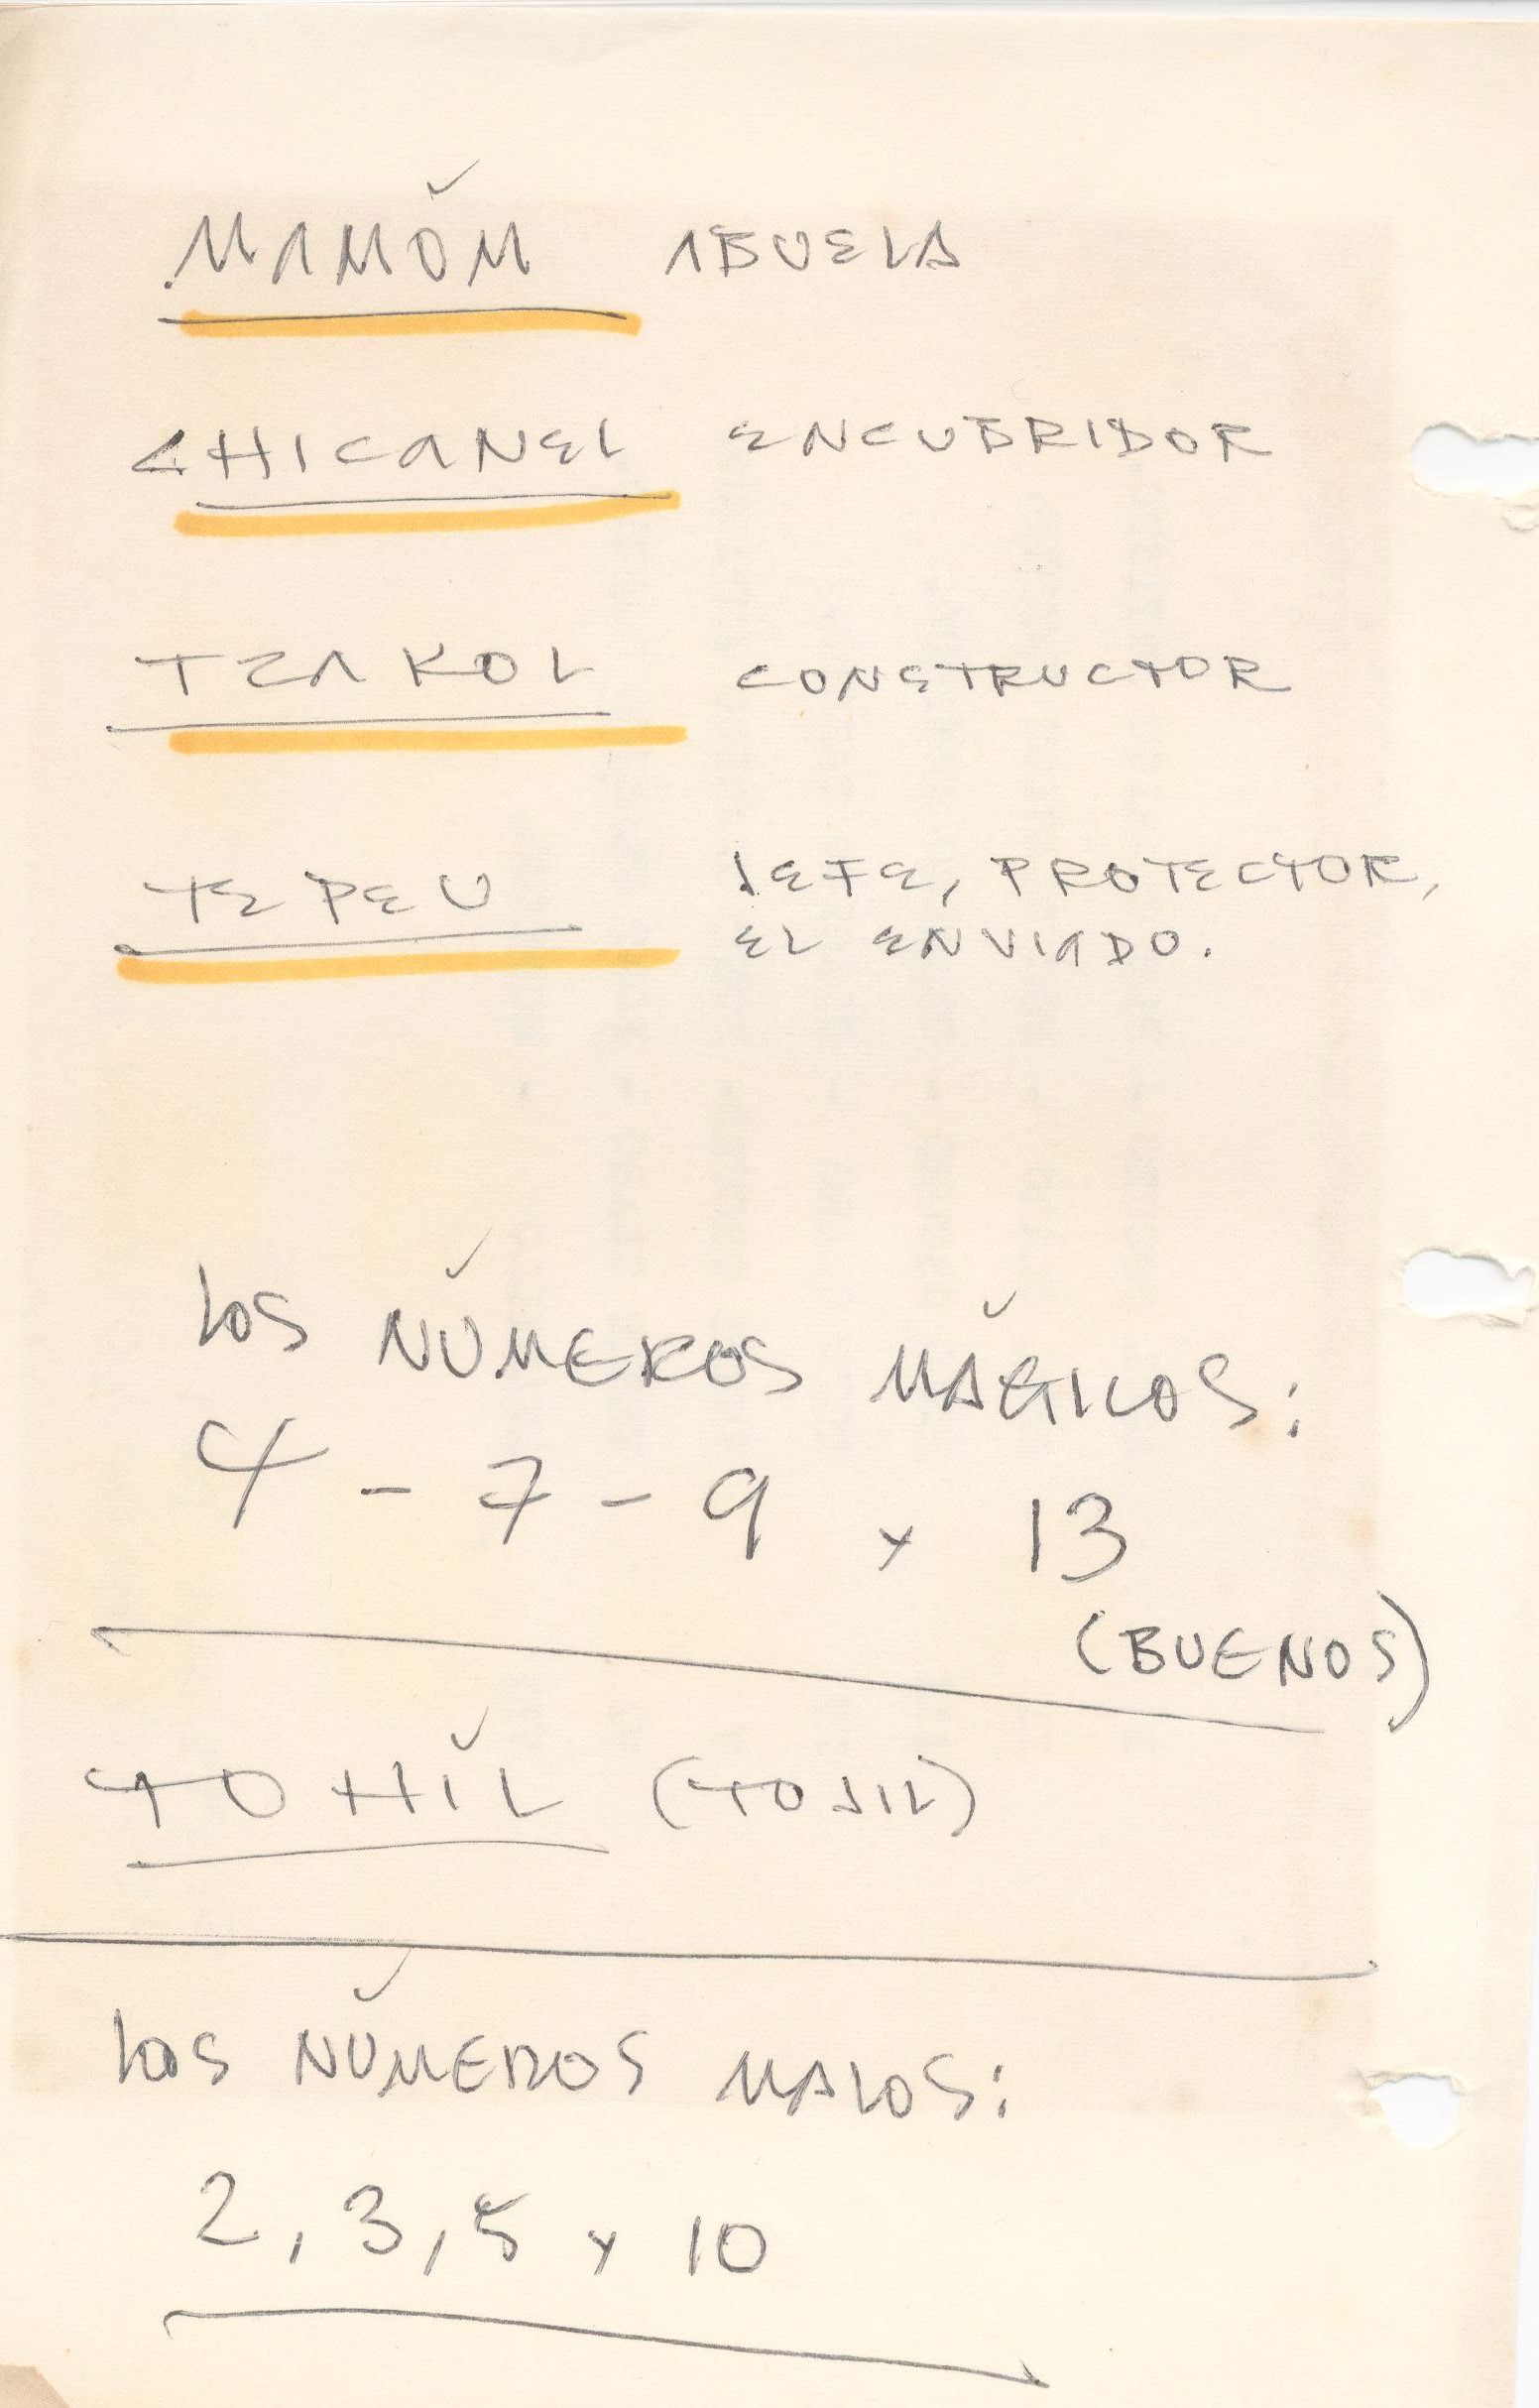 MAMÓM ABUELA
CHICANEL ENCUBRIDOR
TZAKOL CONSTRUCTOR
TEPEU JEFE, PROTECTOR,
EL ENVIADO.
LOS NÚMEROS MÁGICOS:
4 - 7 - 9 Y 13
(BUENOS)
TOHÍL (TOJIL)
LOS NÚMEROS MALOS:
2, 3, 5 Y 10